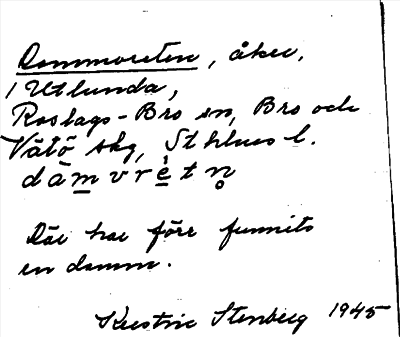 Dammvreten, åker,
i Utlunda,
Roslags-Bro sn, Bro och
Vätö skg, Sthlms l.
dàmvrètn̥
Där har förr funnits
en damm.
Kerstin Stenberg 1945